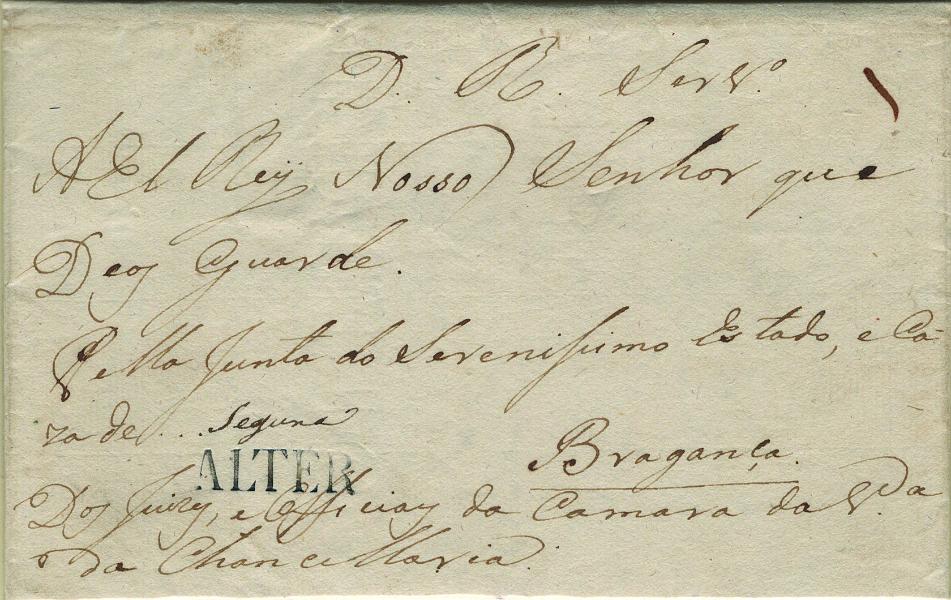 D. R. Serv.º
A El Rey Nosso Senhor que
Deos Guarde.
Pella Junta do Serenissimo Estado, e Ca
za de...
Bragança.
ALTER
Dos Juizes, e Officiaes da Camara da V.ª
da Chancellaria.